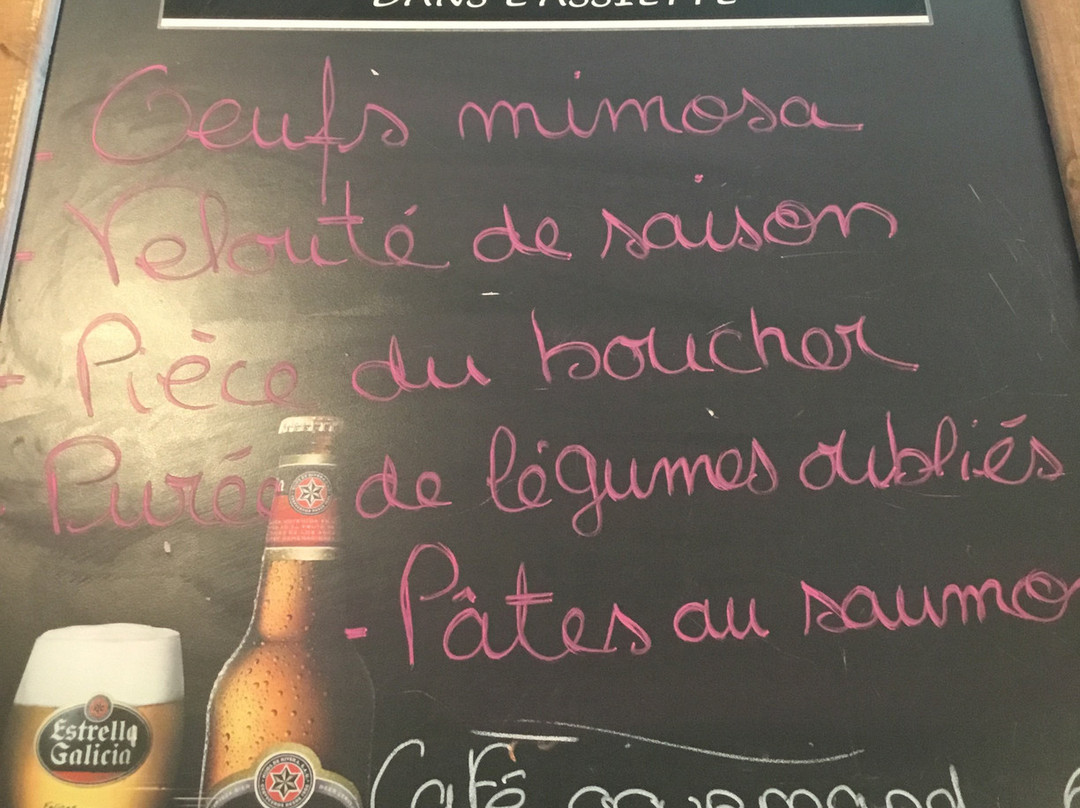 DANS L'ASSIETTE
- Oeufs mimosa
- Velouté de saison
- Pièce du boucher
- Purée de légumes oubliés
- Pâtes au saumo
Estrella
Galicia
Café gourmand